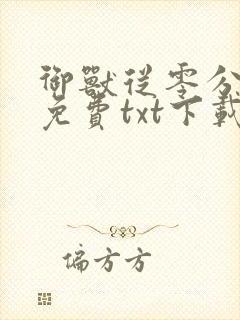 御獸從零分
免費txt下載
偏方方